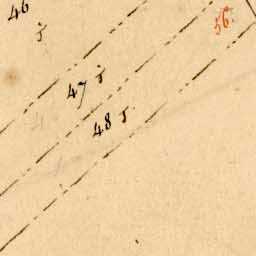 46
5
47 5
48 5.
56.